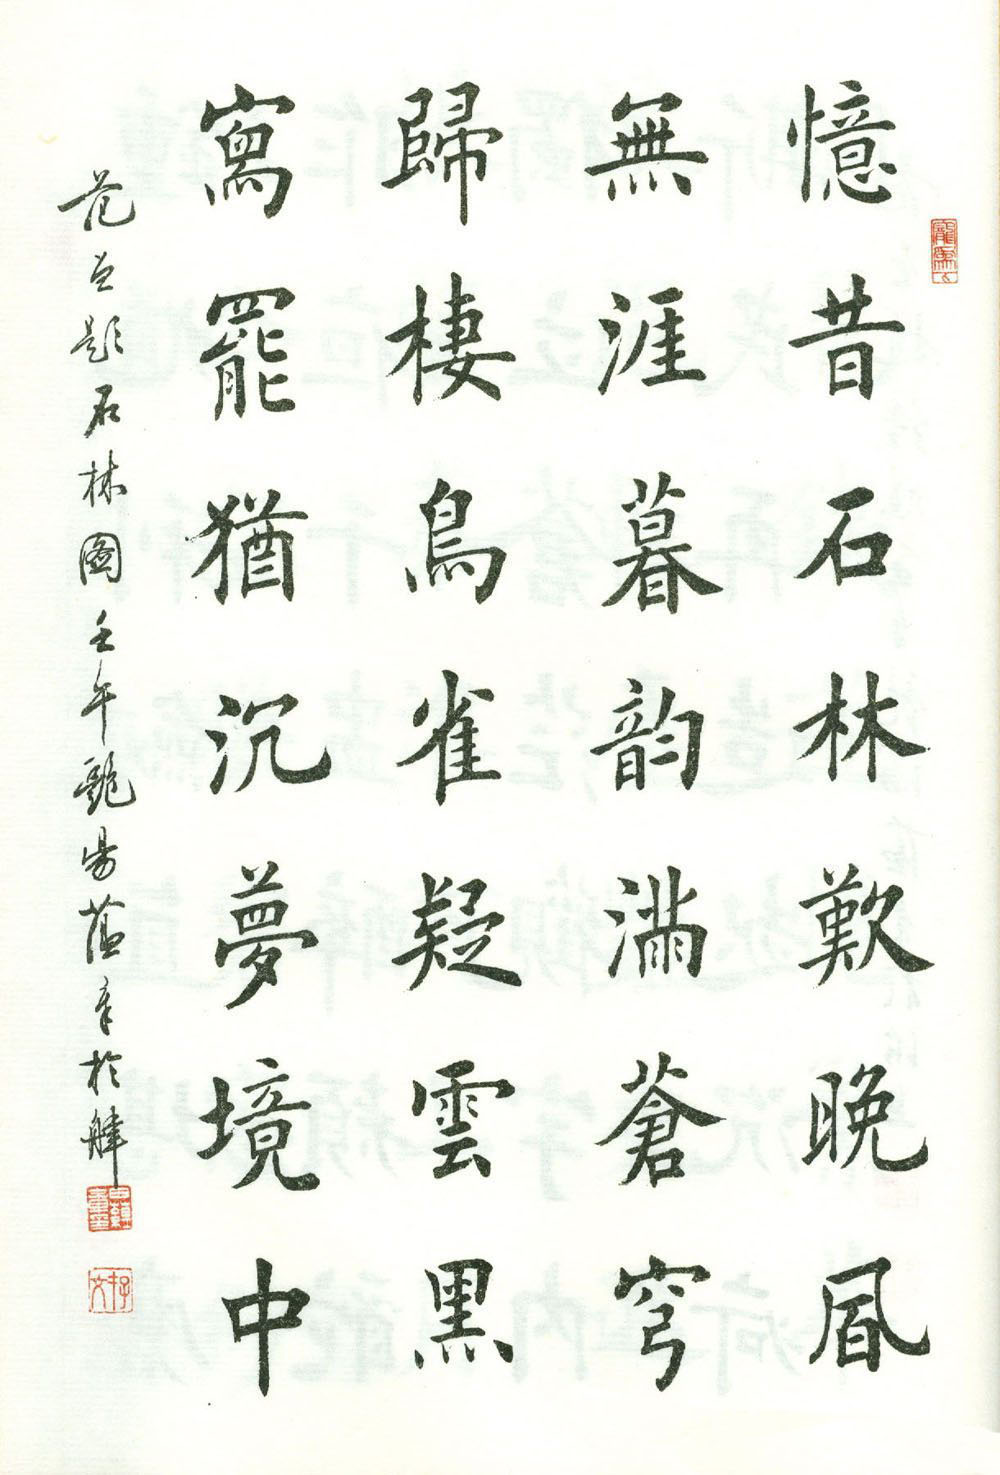 憶昔石林歎晚風
無涯暮韵滿蒼穹
歸棲鳥雀疑雲黑
寫罷猶沉夢境中
范曾題石林圖壬午艷陽蔭章於津